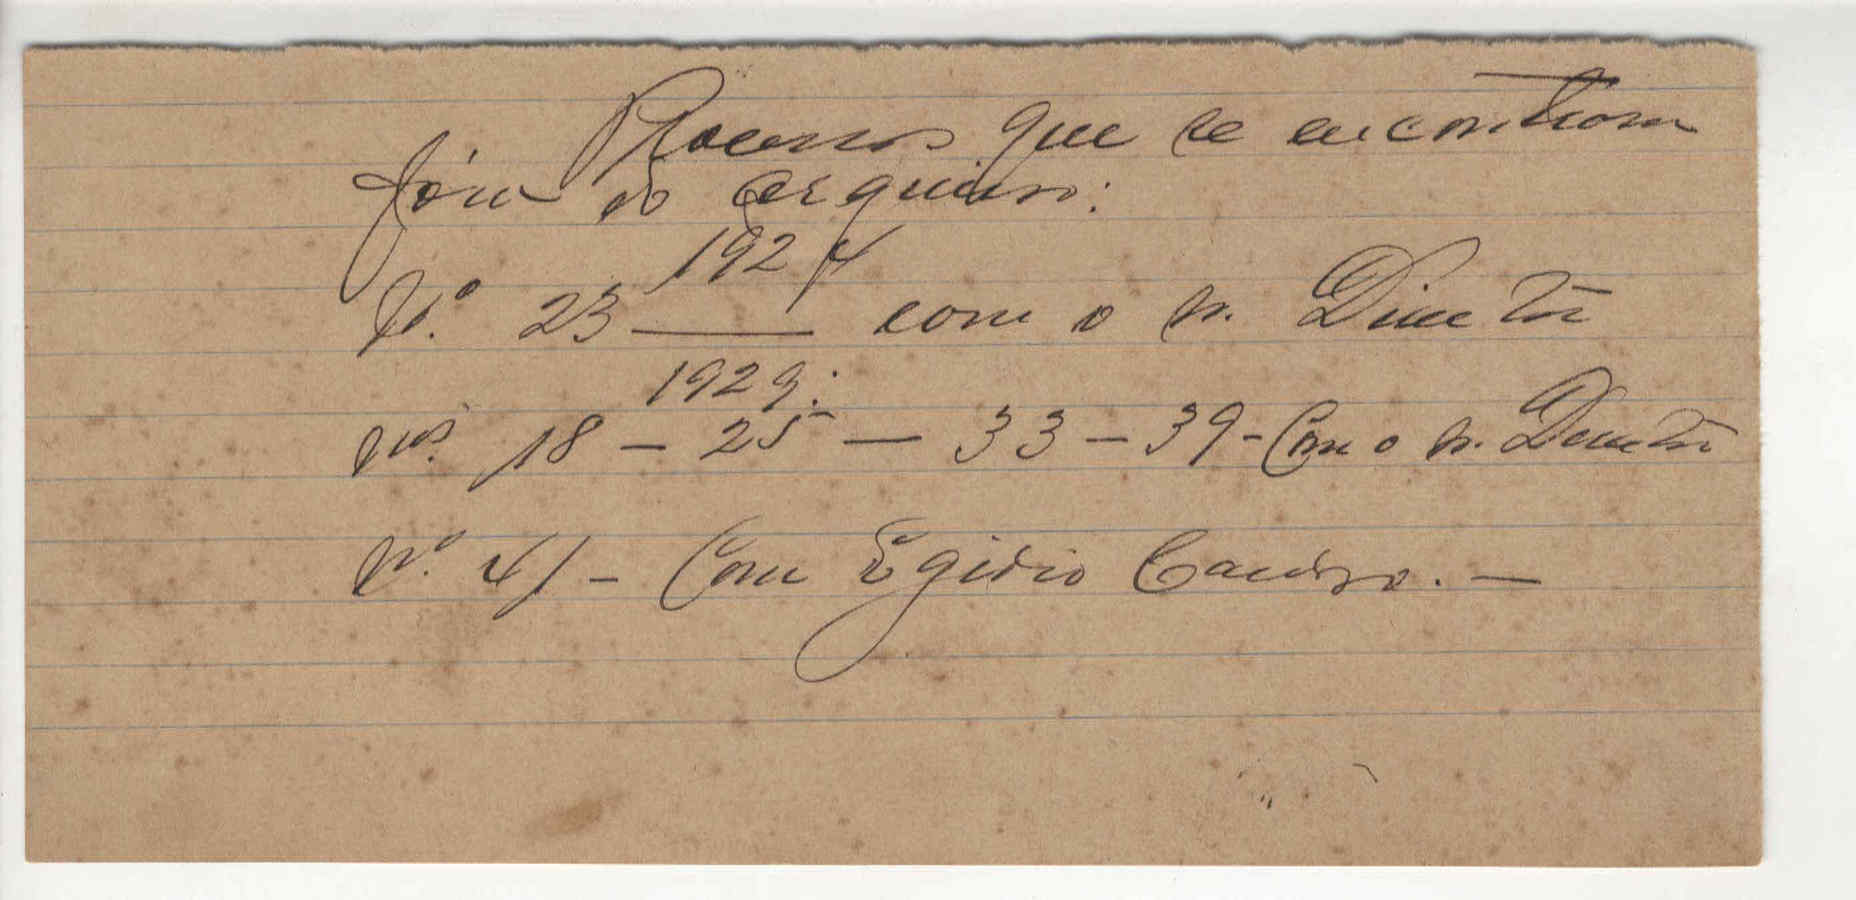 Processos que se encontram
fóra do Arquivo:
1924
Nº 23 —— com o sr. Director
1929:
Nos. 18 — 25 — 33 — 39 - Com o sr. Director
Nº 41 — Com Egidio —